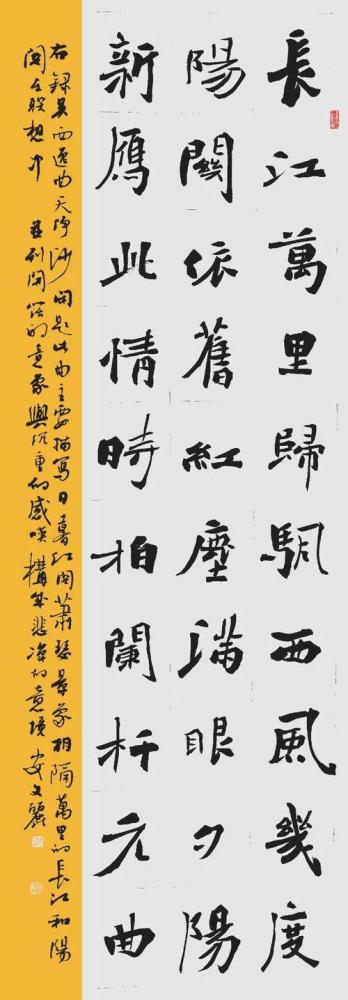 長江萬里歸颿西風幾度
陽關依舊紅塵滿眼夕陽
新鴈此情時拍闌杆元曲
右錄吳西逸曲天净沙閑題此曲主要描寫日暮江関蕭瑟景象相隔萬里的長江和陽
関在聯想中並列開闊的意象與沉重的感嘆構成悲凉的意境安文麗